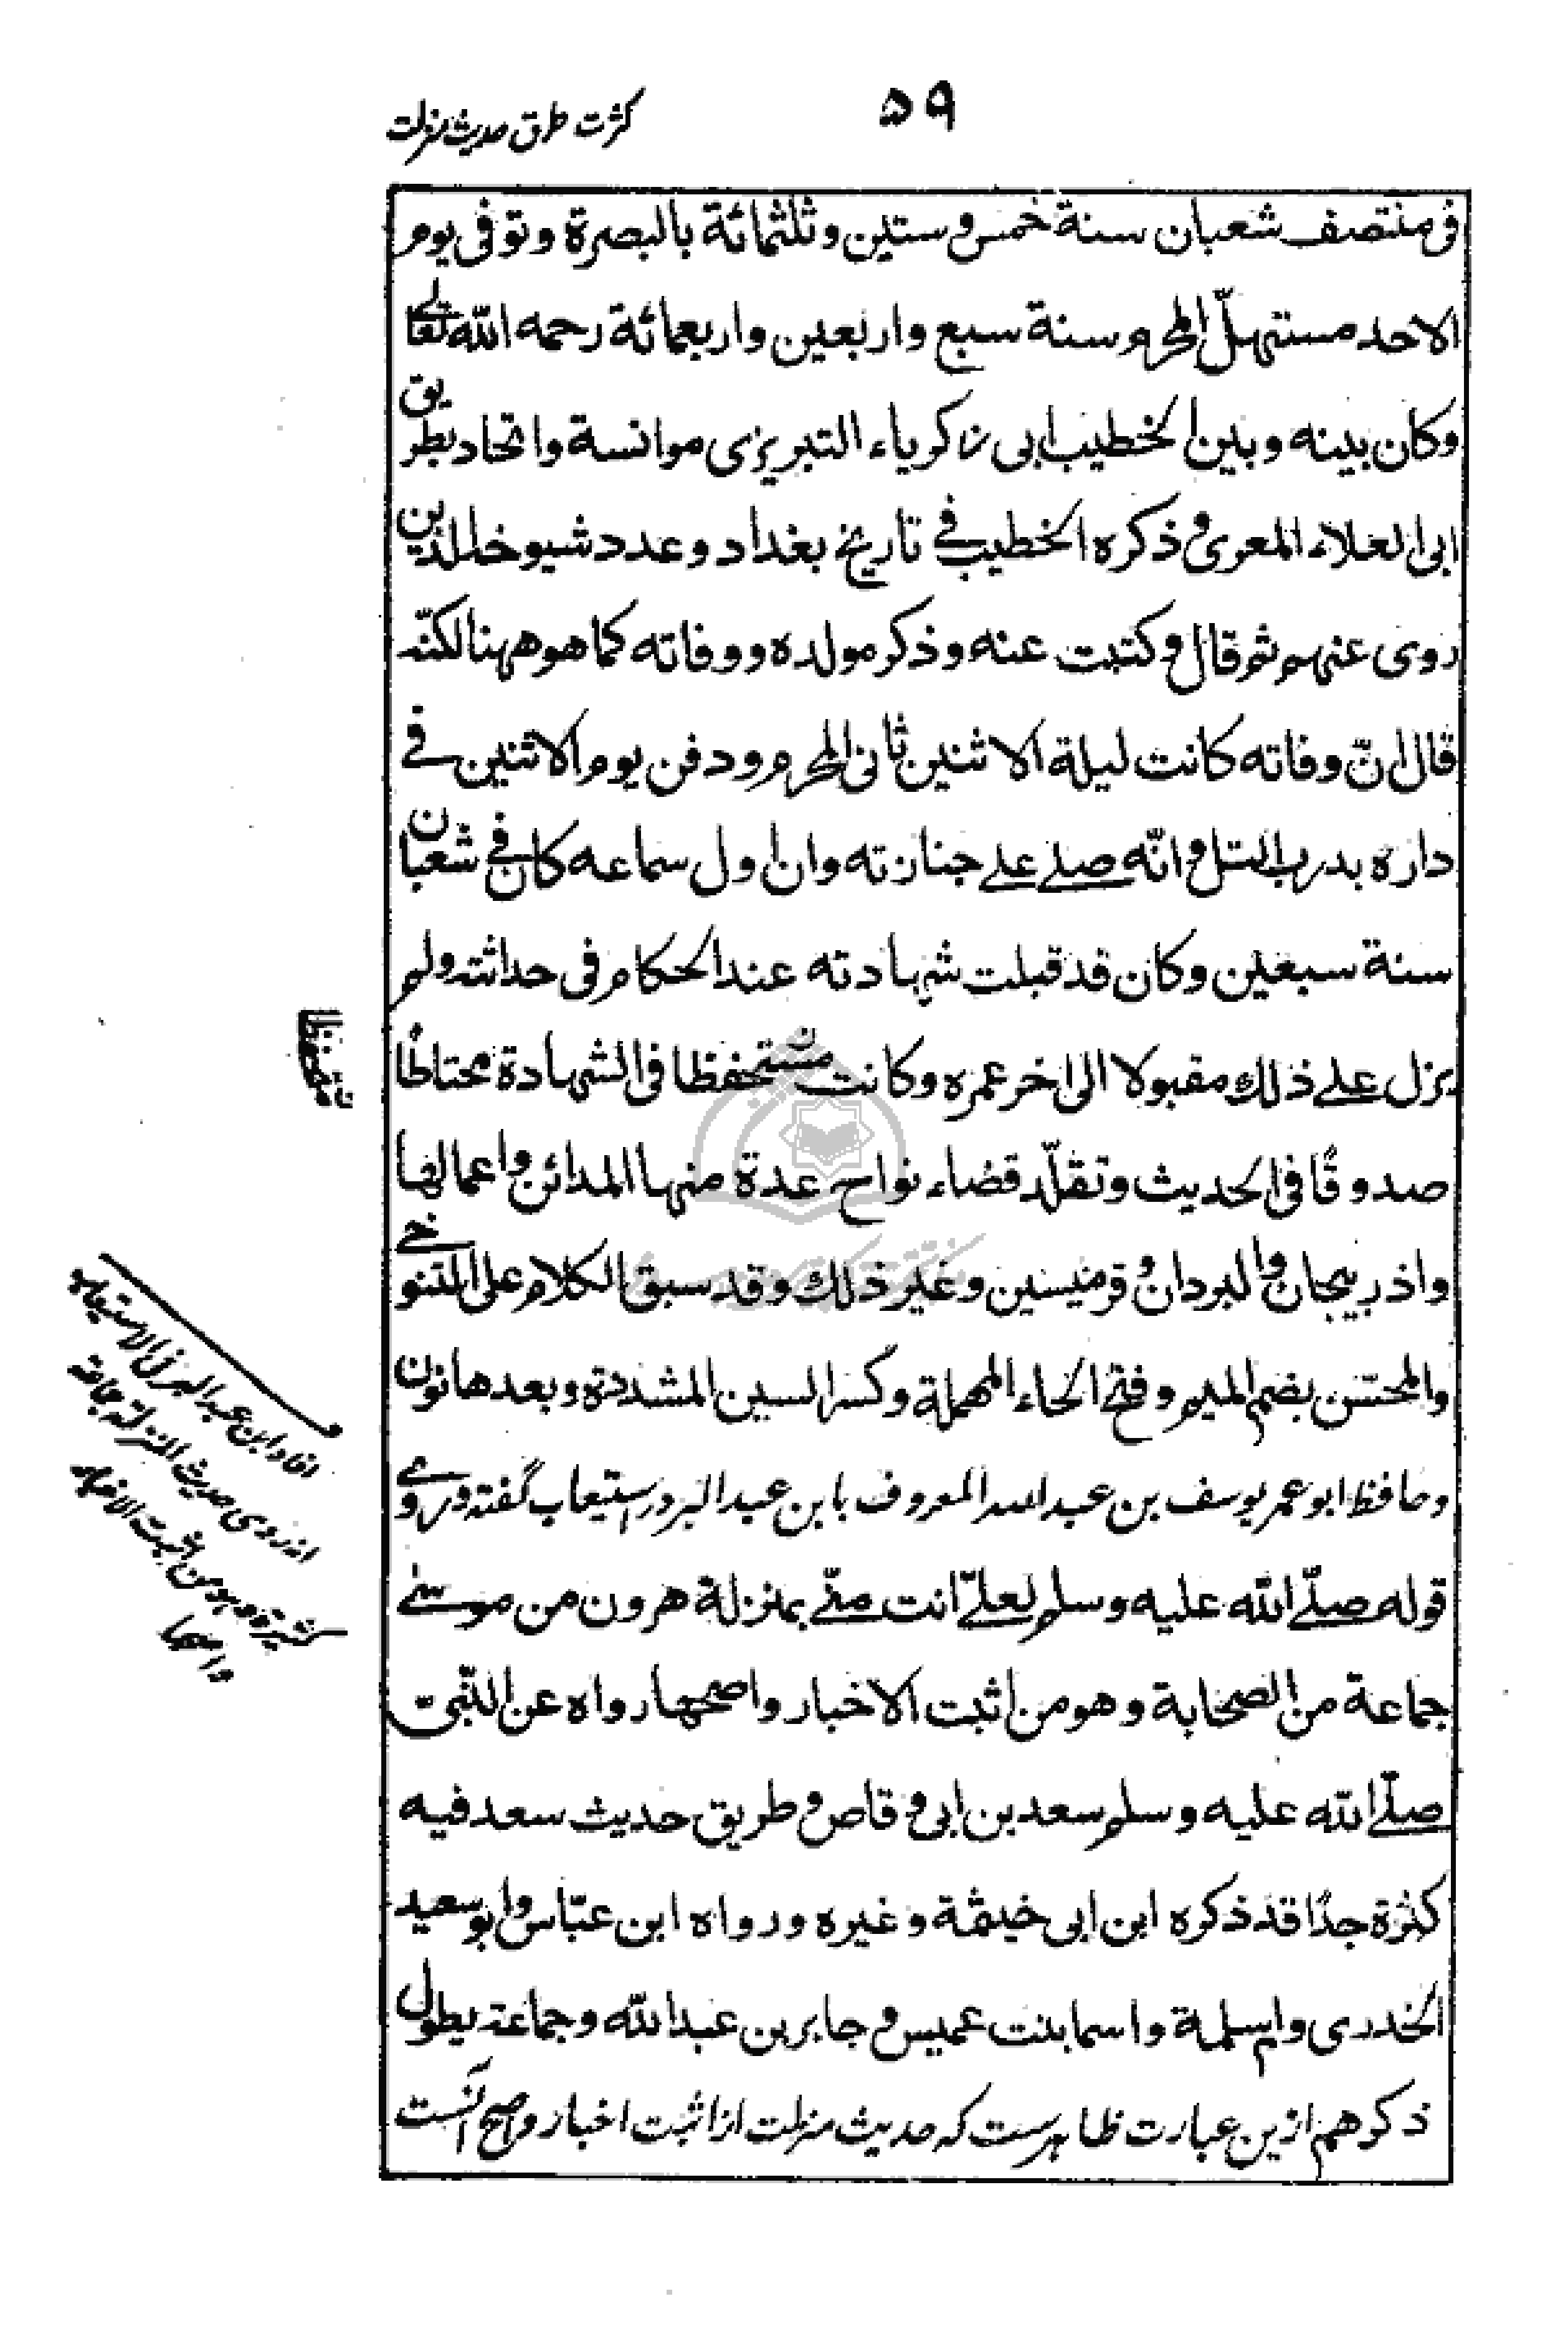 ۵۹
کثرت طرق حدیث منزلت
فی منتصف شعبان سنة خمس وستین وثلثمائة بالبصرة وتوفی یوم
الاحد مستهلّ المحرم سنة سبع واربعین واربعمائة رحمه الله تعالے
وکان بینه وبین الخطیب ابی زکریاء التبریزی موانسة واتحاد بطریق
ابی العلاء المعری وذکره الخطیب فے تاریخ بغداد وعدد شیوخه الذین
روی عنهم ثم قال وکتبت عنه وذکر مولده ووفاته کما هو ههنا لکنّه
قال انّ وفاته کانت لیلة الاثنین ثانی المحرم ودفن یوم الاثنین فے
داره بدرب التل وانّه صلے علے جنازته وان اول سماعه کان فے شعبان
سنة سبعین وکان قد قبلت شهادته عند الحکام فی حداثته ولم
یزل علے ذلك مقبولا الی اخر عمره وکانت مستحفظا فی الشهادة محتاطًا
متحفظا
صدوقًا فی الحدیث وتقلّد قضاء نواح عدة منها المدائن واعمالها
واذربیجان والبردان وقرمیسین وغیر ذلك وقد سبق الکلام علی التنوخے
والمحسّن بضم المیم وفتح الحاء المهملة وکسر السین المشددة وبعدها نون
وحافظ ابو عمر یوسف بن عبد الله المعروف بابن عبد البر در استیعاب گفته وروے
قوله صلّے الله علیه وسلم لعلےّ انت منّے بمنزلة هرون من موسے
جماعة من الصحابة وهو من اثبت الاخبار واصحها رواه عن النّبیّ
صلّے الله علیه وسلم سعد بن ابی وقاص وطریق حدیث سعد فیه
کثرة جدًا قد ذکره ابن ابی خیثمة وغیره ورواه ابن عبّاس وابو سعید
الخدری وام سلمة واسما بنت عمیس وجابر بن عبد الله وجماعة یطول
ذکرهم ازین عبارت ظاهرست که حدیث منزلت از اثبت اخبار واصح آنست
افاد ابن عبد البر فی الاستیعاب
انه روی حدیث المنزلة جماعة
کثیرة وهو من اثبت الاخبار
واصحها